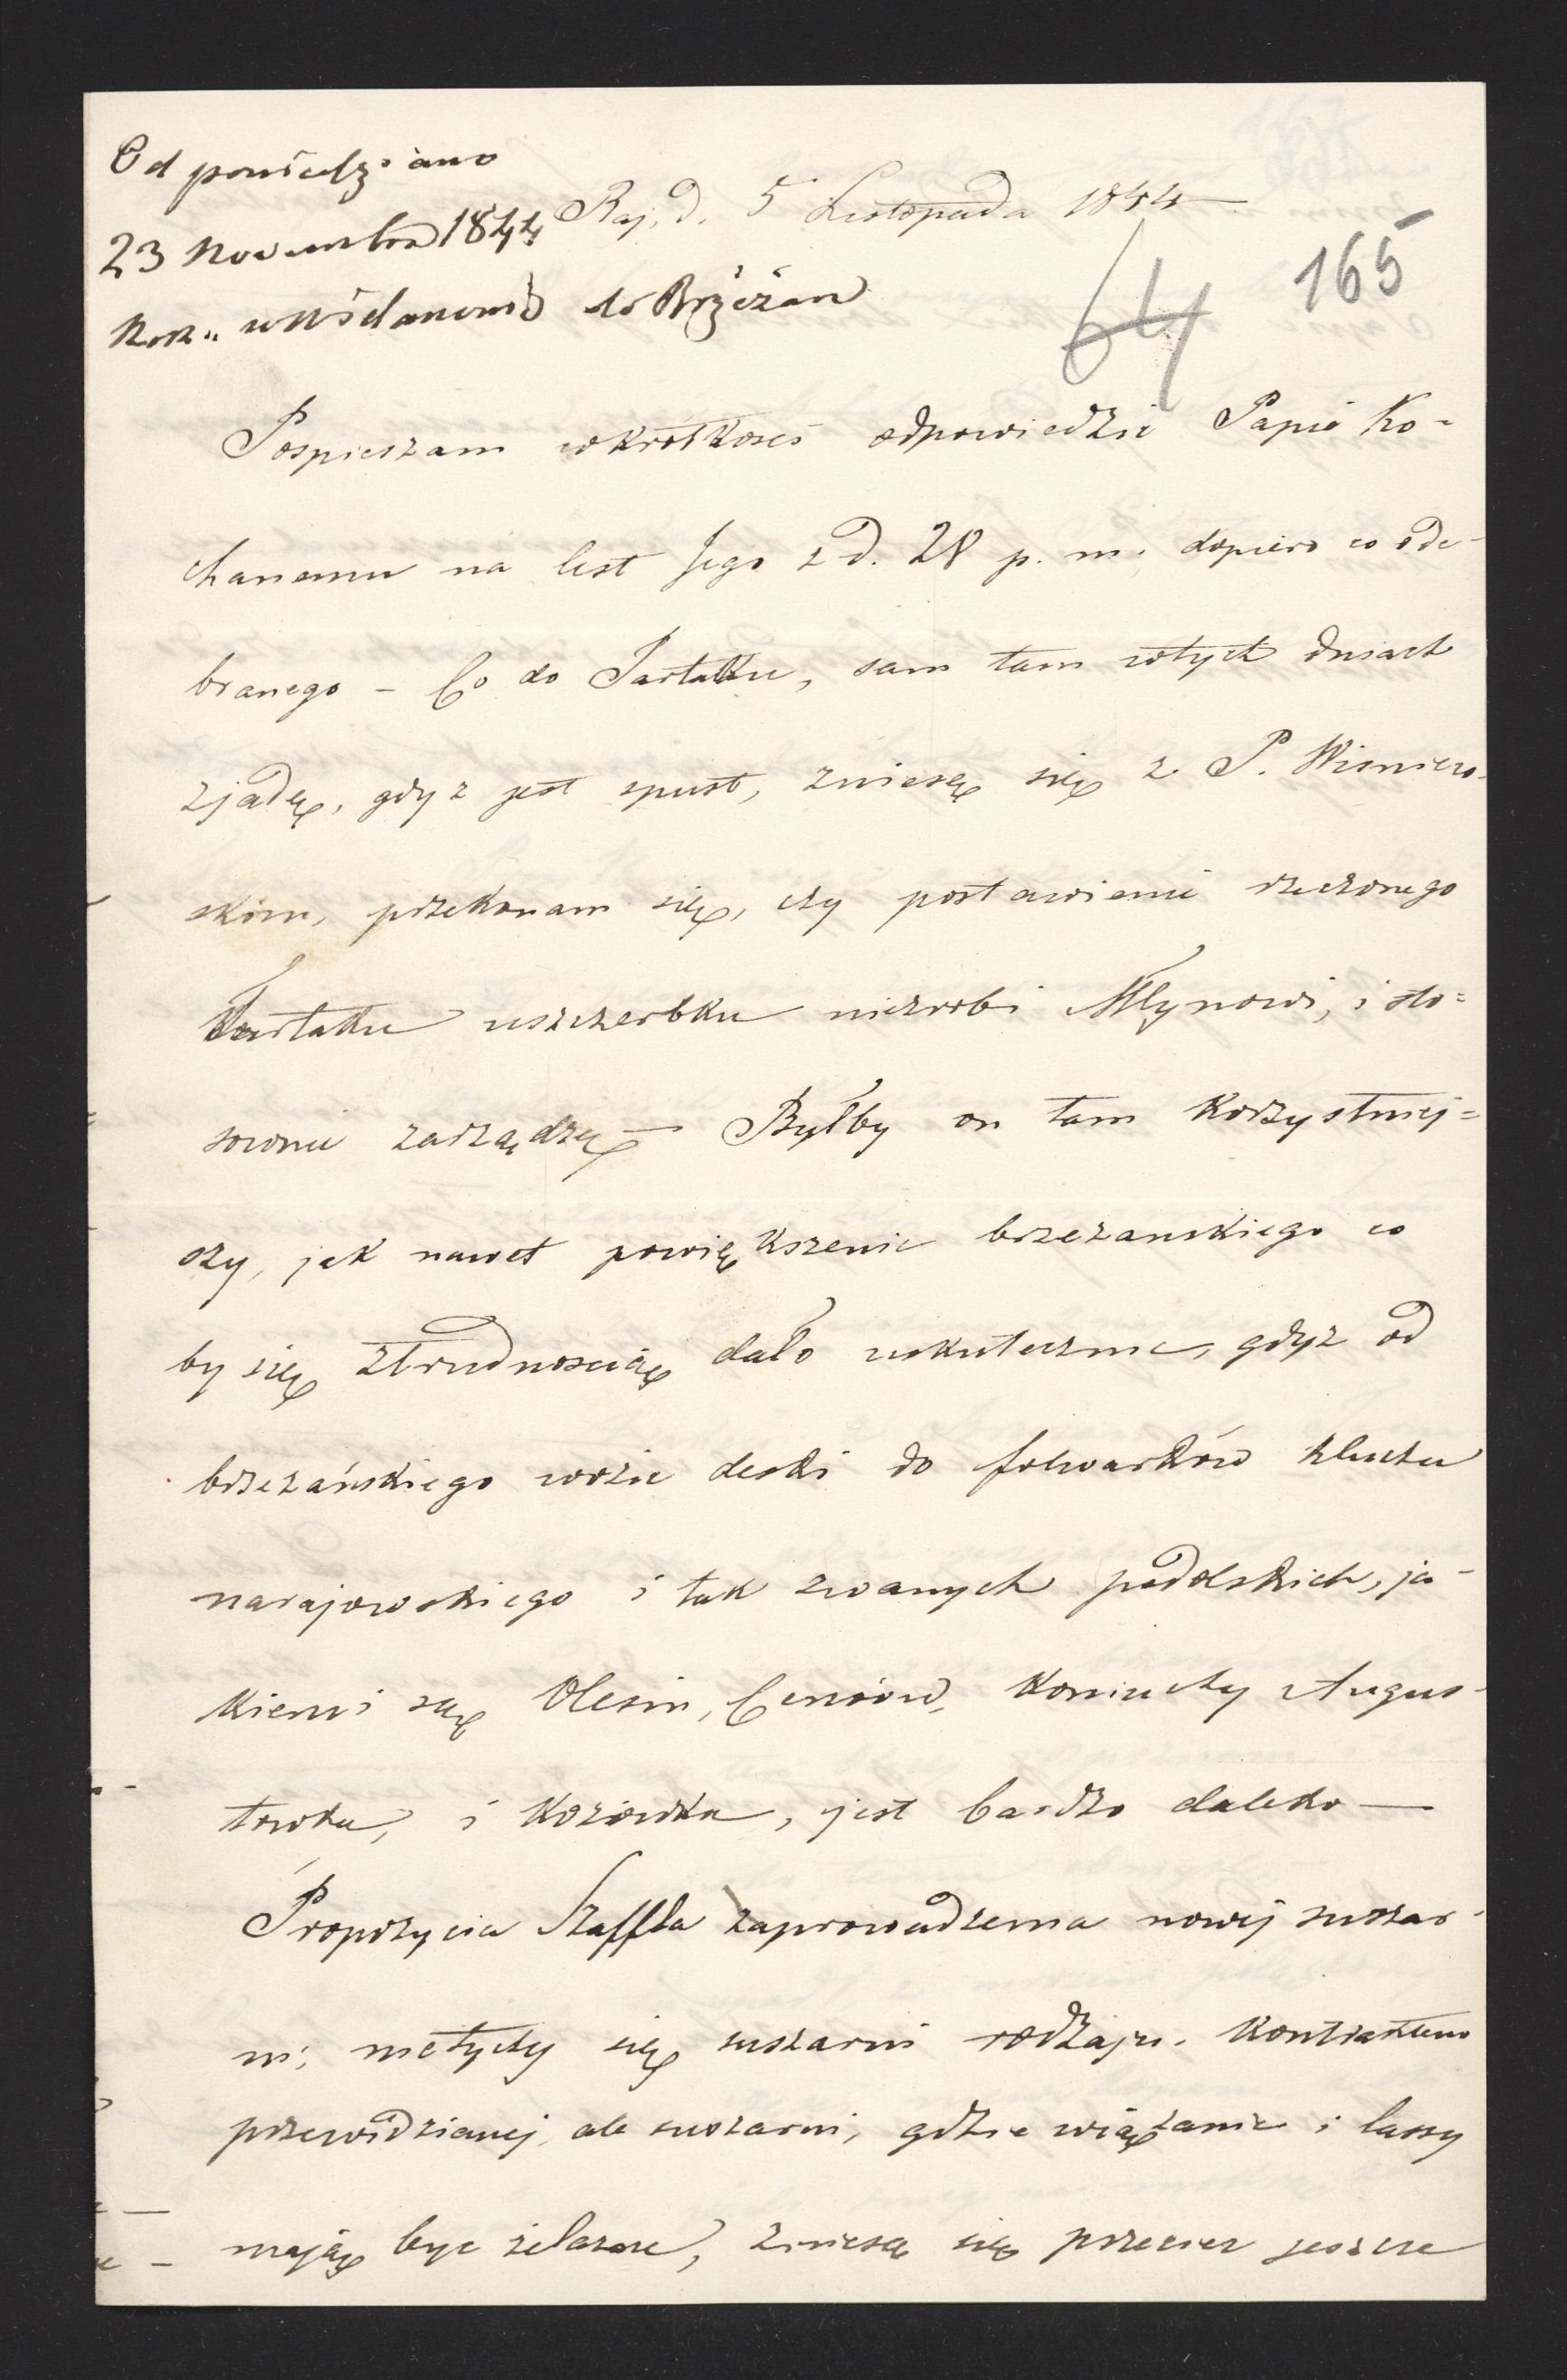 Odpowiedziano
23 Novembra 1844
Raj, d. 5 Listopada 1844
165
64
do Brzeżan
Pospieszam w krótkości odpowiedzić Papie Ko=
chanemu na list Jego z d. 28 p. m. dopiero co ode-
branego – Co do Tartaku, sam tam wtych dniach
zjadę, gdyż jest spust, zniesę się z P. Wisniew-
skim, przekonam się, czy postawienie rzeczonego
Tartaku uszczerbku niezrobi Młynowi, i sto=
sownie zarządzę – Byłby on tam korzystniej=
szy, jak nawet powiększenie brzezanskiego co
by się ztrudnoscią dało uskutecznic, gdyż od
brzeżańskiego wozić deski do folwarków klucza
narajowskiego i tak zwanych podolskich, ja-
kiemi są Olesin, Ceniów, Koniuchy Augus-
towka, i Kozówka, jest bardzo daleko –
Propozycia Szaffla zaprowadzenia nowej suszar-
ni, nietyczy się suszarni rodzaju kontraktem
przewidzianej, ale suszarni, gdzie wiązanie i lassy
mają byc żelazne, zniesę się przeciez jeszcze